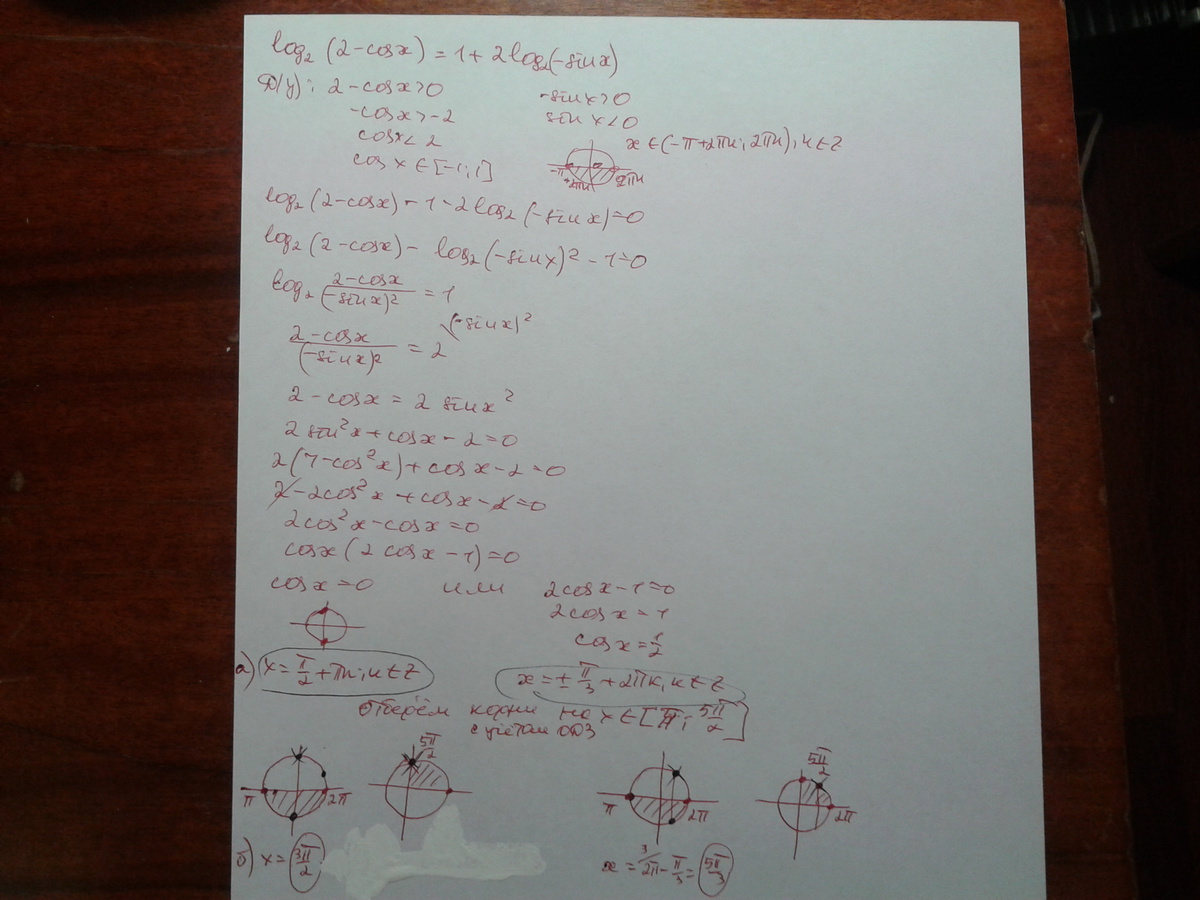 log₂(2-cosx)=1+2log₂(-sinx)
2-cosx>0 -sinx>0
-cosx>-2 sinx<0
cosx<2 x∈(-π+2πn; 2πn), n∈Z
cosx∈[-1;1] -π+2πn 2πn
log₂(2-cosx)-1-2log₂(-sinx)=0
log₂(2-cosx)-log₂(-sinx)²-1=0
log₂ (2-cosx)/(-sinx)² =1
(2-cosx)/(-sinx)² = 2 (-sinx)²
2-cosx=2sinx²
2sin²x+cosx-2=0
2(1-cos²x)+cosx-2=0
2-2cos²x+cosx-2=0
2cos²x-cosx=0
cosx(2cosx-1)=0
cosx=0 или 2cosx-1=0
2cosx=1
cosx=1/2
а) x=π/2+πn; n∈Z x=±π/3+2πk, k∈Z
отберём корни на x∈[π; 5π/2]
с учётом ОДЗ
π 2π 5π/2 π 2π 5π/2 2π
б) x=3π/2 x=2π-π/3=5π/3